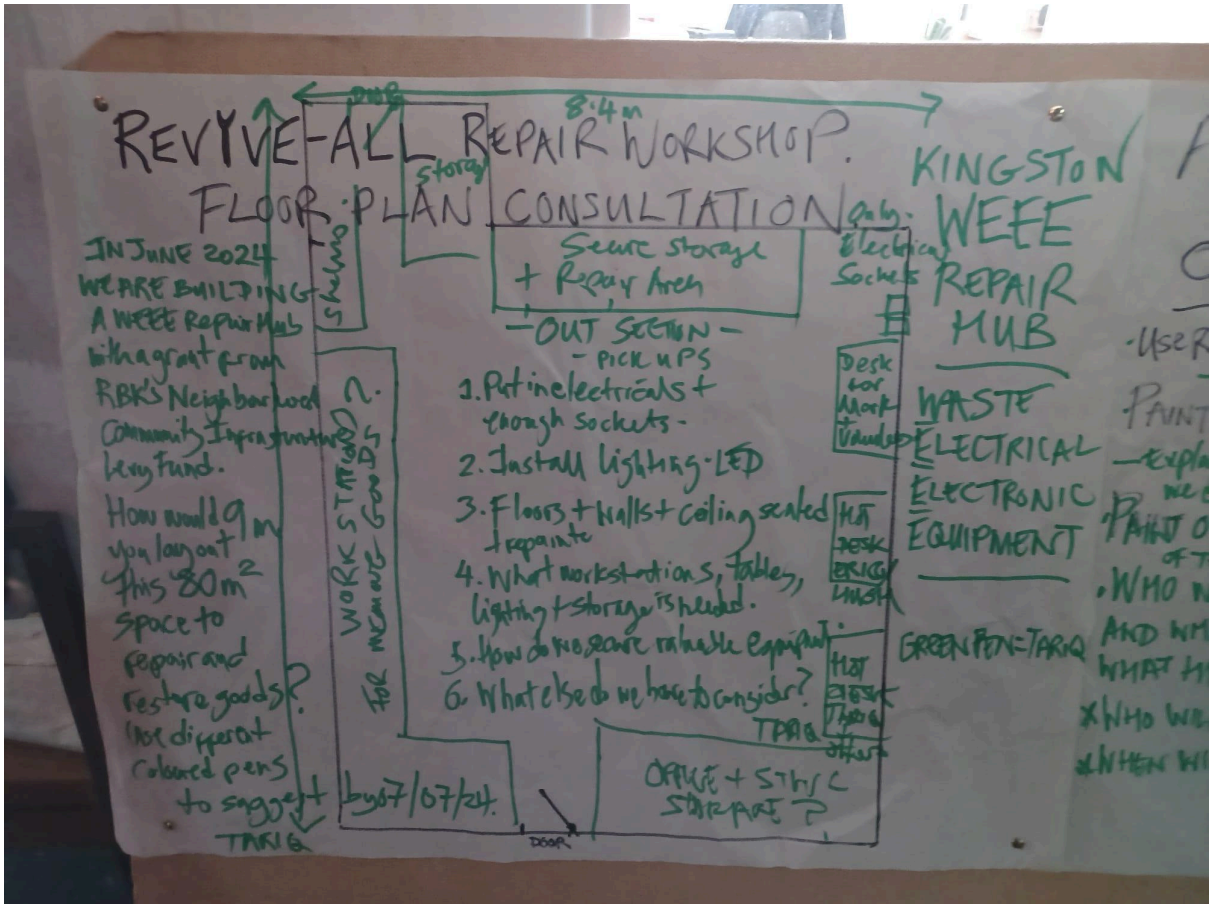 DOOR
8.4m
REVIVE-ALL REPAIR WORKSHOP.
FLOOR PLAN CONSULTATION
Storag
IN JUNE 2024
WE ARE BUILDING
A WEEE Repair Hub
with a grant from
RBK's Neighbourhood
Community Infrastructure
Levy Fund.
How would
you layout
this 80m²
space to
repair and
restore goods?
Use different
coloured pens
to suggest
TARIQ
9m
Shelving
WORK STATIONS?
FOR MENDING GOODS?
by 07/07/24.
Secure storage
+ Repair Area
- OUT SECTION -
- PICK UPS
1. Put in electricals +
enough sockets.
2. Install lighting-LED
3. Floors + walls + ceiling sealed
+ repainte
4. What workstations, tables,
lighting + storage is needed.
5. How do we secure valuable
6. What else do we have to consider?
TARIQ
Only
Electrical
Sockets
Desk
for
Mark
+
HOT
DESK
HOT
DESK
OFFICE +
STORAGE?
DOOR
KINGSTON
WEEE
REPAIR
HUB
WASTE
ELECTRICAL
ELECTRONIC
EQUIPMENT
GREEN PEN=TARIQ
• USE R
PAINT
we
PAINT O
OF T
• WHO W
AND WH
WHAT H
*WHO WI
*WHEN WI